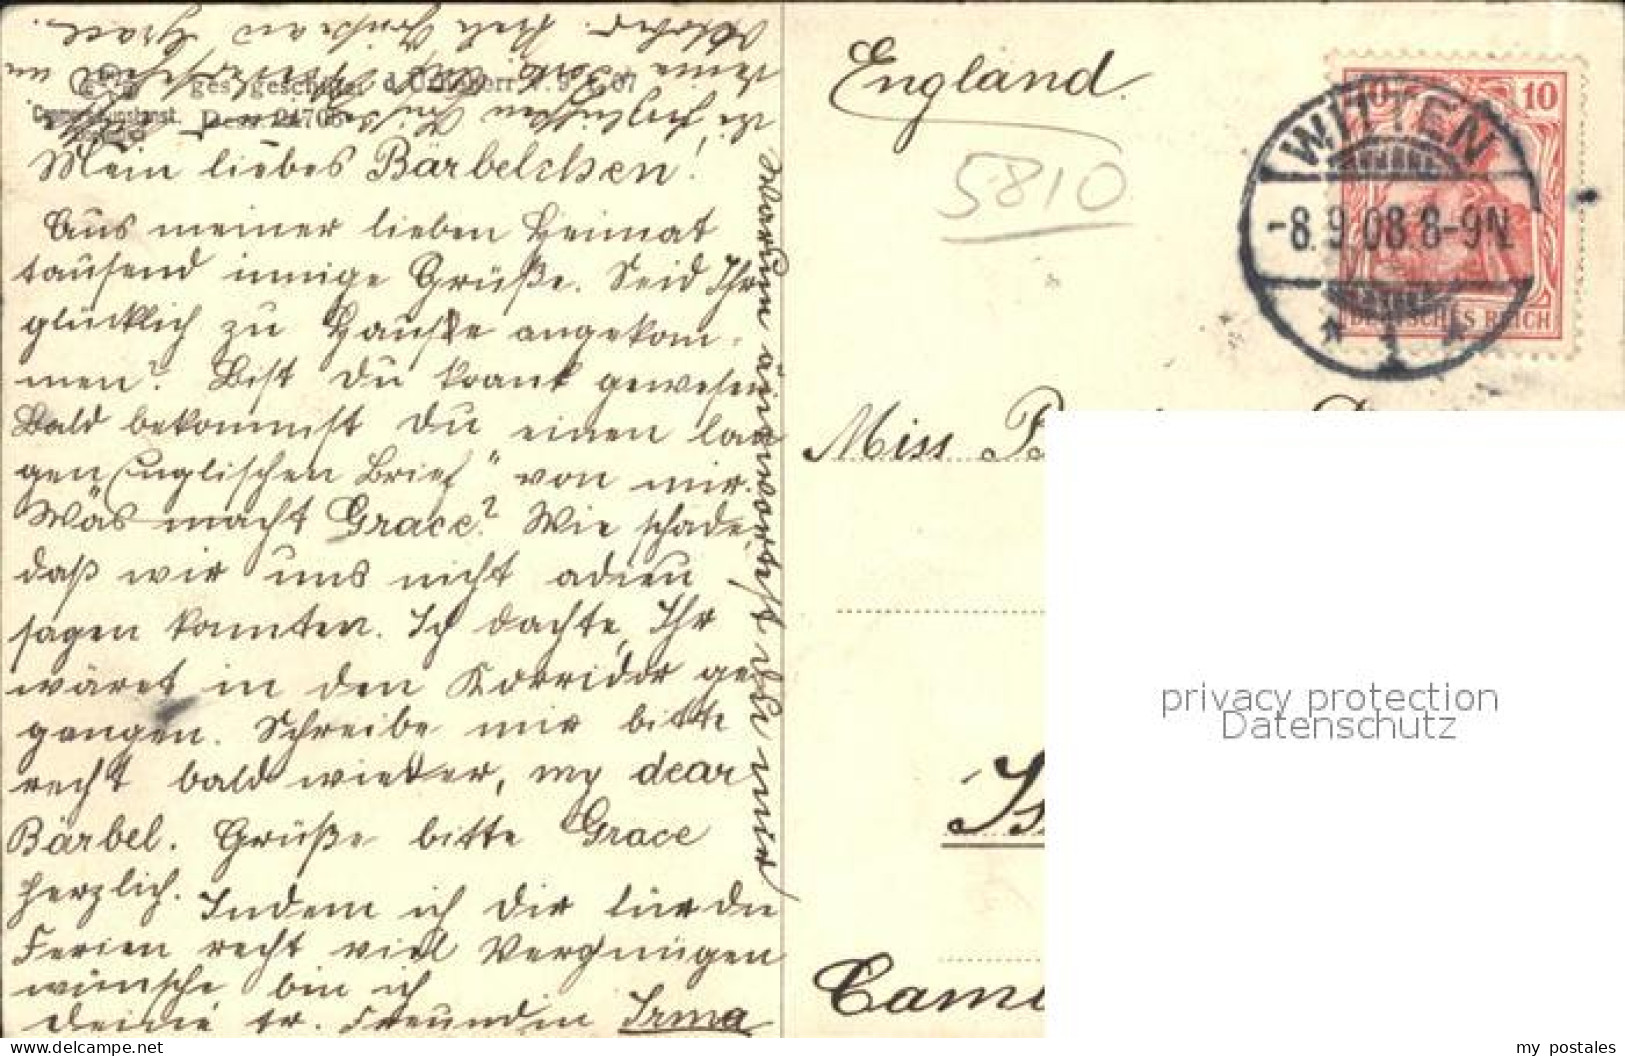 ges. geschützt
Dess. 24706
Mein liebes Bärbelchen!
Aus meiner lieben Heimat
tausend innige Grüße. Seid Ihr
glücklich zu Hause angekom-
men? Bist Du krank gewesen?
Bald bekommst Du einen lan
gen „englischen Brief“ von mir.
Was macht Grace? Wie schade,
daß wir uns nicht adieu
sagen konnten. Ich dachte, Ihr
wäret in den Korridor ge
gangen. Schreibe mir bitte
recht bald wieder, my dear
Bärbel. Grüße bitte Grace
herzlich. Indem ich Dir für die
Ferien recht viel Vergnügen
wünsche bin ich
Deine tr. Freundin Irma
Warum antwortest Du mir
England.
5810
WITTEN
-8.9.08.8-9N.
* 1 *
10
DEUTSCHES REICH
Miss
privacy protection
Datenschutz
my postales